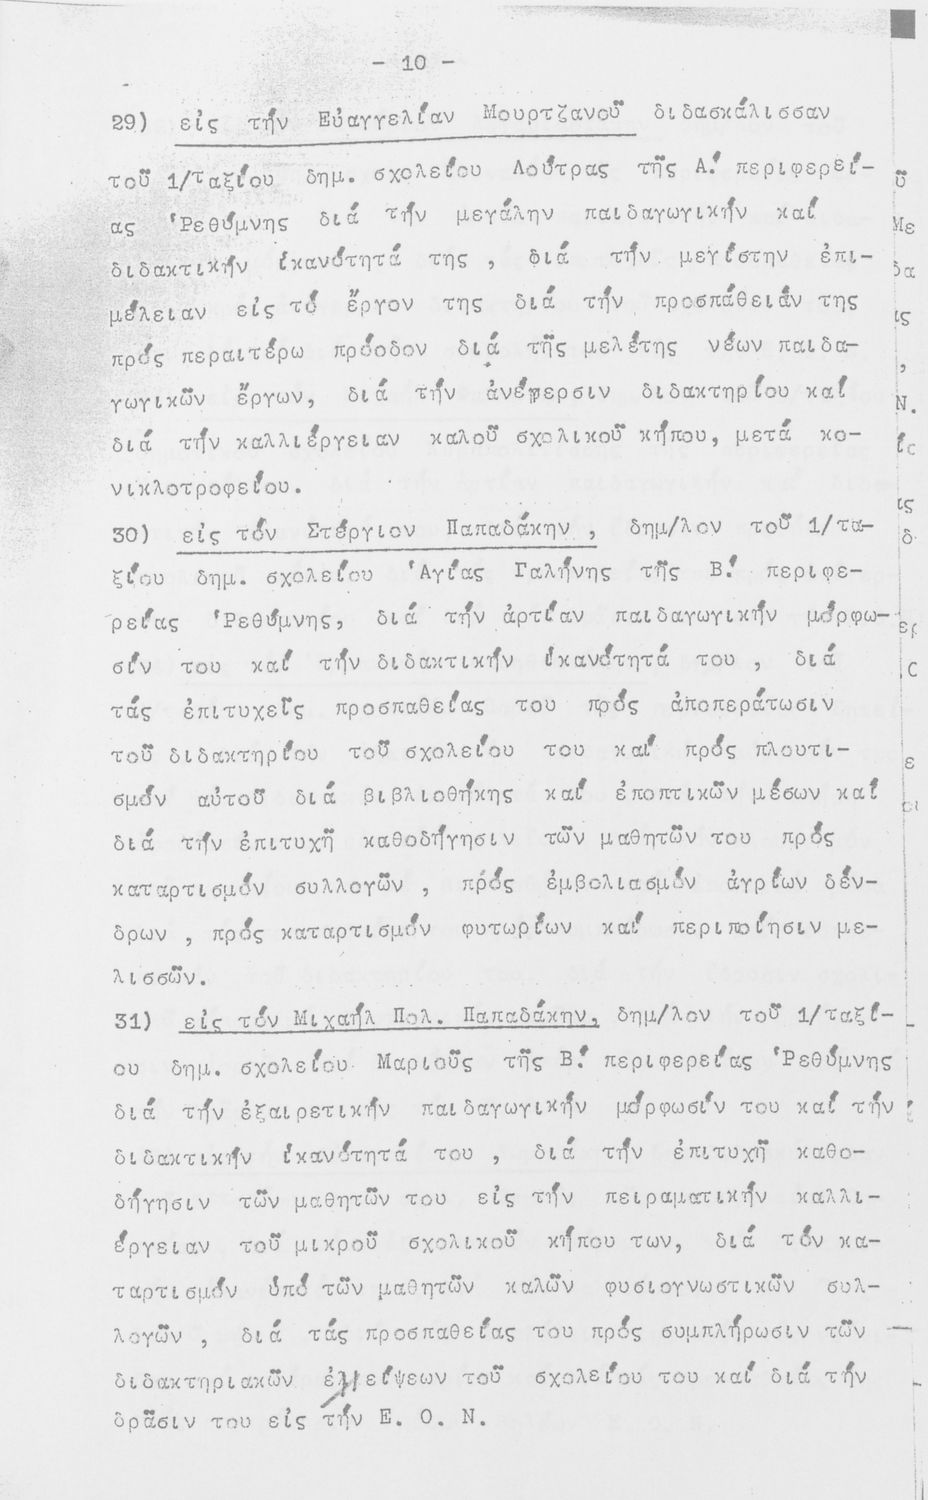 - 10 -
29) εἰς τήν Εὐαγγελίαν Μουρτζανοῦ διδασκάλισσαν
τοῦ 1/ταξίου δημ. σχολείου Λούτρας τῆς Α΄ περιφερεί-
ας Ῥεθύμνης διά τήν μεγάλην παιδαγωγικήν καί
διδακτικήν ἱκανότητά της , διά τήν μεγίστην ἐπι-
μέλειαν εἰς τό ἔργον της διά τήν προσπάθειάν της
πρός περαιτέρω πρόοδον διά τῆς μελέτης νέων παιδα-
γωγικῶν ἔργων, διά τήν ἀνέγερσιν διδακτηρίου καί
διά τήν καλλιέργειαν καλοῦ σχολικοῦ κήπου, μετά κο-
νικλοτροφείου.
30) εἰς τόν Στέργιον Παπαδάκην , δημ/λον τοῦ 1/τα-
ξίου δημ. σχολείου Ἁγίας Γαλήνης τῆς Β΄ περιφε-
ρείας Ῥεθύμνης, διά τήν ἀρτίαν παιδαγωγικήν μόρφω-
σίν του καί τήν διδακτικήν ἱκανότητά του , διά
τάς ἐπιτυχεῖς προσπαθείας του πρός ἀποπεράτωσιν
τοῦ διδακτηρίου τοῦ σχολείου του καί πρός πλουτι-
σμόν αὐτοῦ διά βιβλιοθήκης καί ἐποπτικῶν μέσων καί
διά τήν ἐπιτυχῆ καθοδήγησιν τῶν μαθητῶν του πρός
καταρτισμόν συλλογῶν , πρός ἐμβολιασμόν ἀγρίων δέν-
δρων , πρός καταρτισμόν φυτωρίων καί περιποίησιν με-
λισσῶν.
31) εἰς τόν Μιχαήλ Πολ. Παπαδάκην, δημ/λον τοῦ 1/ταξί-
ου δημ. σχολείου Μαριοῦς τῆς Β΄ περιφερείας Ῥεθύμνης
διά τήν ἐξαιρετικήν παιδαγωγικήν μόρφωσίν του καί τήν
διδακτικήν ἱκανότητά του , διά τήν ἐπιτυχῆ καθο-
δήγησιν τῶν μαθητῶν του εἰς τήν πειραματικήν καλλι-
έργειαν τοῦ μικροῦ σχολικοῦ κήπου των, διά τόν κα-
ταρτισμόν ὑπό τῶν μαθητῶν καλῶν φυσιογνωστικῶν συλ-
λογῶν , διά τάς προσπαθείας του πρός συμπλήρωσιν τῶν
διδακτηριακῶν ἐλλείψεων τοῦ σχολείου του καί διά τήν
δρᾶσιν του εἰς τήν Ε. Ο. Ν.